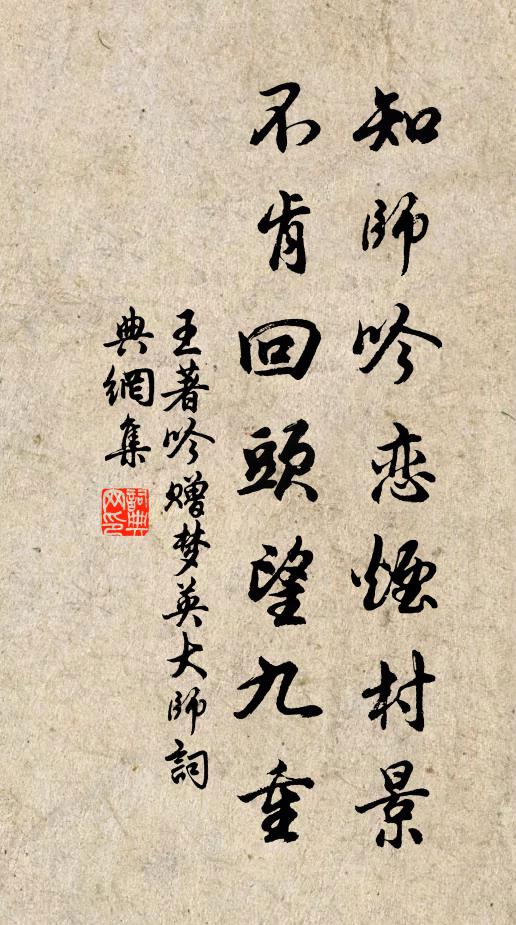 知師吟恋煙村景
不肯回頭望九重
王著吟贈梦英大師詞
典網集
詞典网印